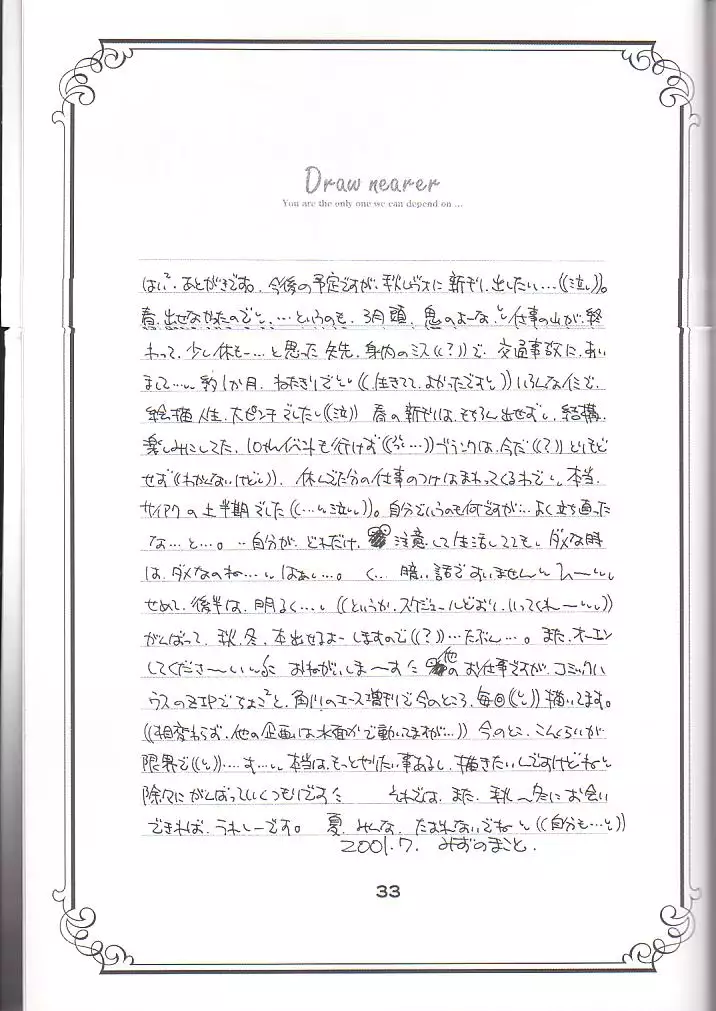 Draw nearer
You are the only one we can depend on ...
はい²、あとがきです。今後の予定ですが、秋レヴォに新刊、出したい…((泣))。
春、出せなかったのでと、…というのも、3月頭、鬼のよーな、と仕事の山が、終
わって、少し休も…と思った矢先、身内のミス((?))で、交通事故に、あい
まして…、約1か月、ねたきりでと((生きてて、よかったですと))いろんなイミで、
絵描人生、大ピンチでした((泣)) 春の新刊は、もちろん出せずし、結構、
楽しみにしてた、 も行けず ブランクは、今だ((?))とりもど
せず((わかんないけど))、休んでた分の仕事のつけはまわってくるわで、本当、
サイアクの上半期でした((…泣))。自分でいうのも何ですが…よく立ち直った
な…と…。…自分が、どれだけ、注意して生活してても、ダメな時
は、ダメなのね…、はぁ…。く…暗い話ですいません
せめて、後半は、明るく…((というか、スケジュールどおり、いってくれ〜))
がんばって、秋、冬、本出せるよーしますので((?))…たぶん…。また、オーエン
してくださ〜い おねがいしま〜す 他のお仕事ですが、コミックハ
ウスのZIPでちょこ²と、角川のエース増刊で今のところ、毎回((と))描いてます。
((相変わらず、他の企画は水面下で動いてますが…)) 今のとこ、こんくらいが、
限界で((と))…す…本当は、もっとやりたい事あるし、描きたいんですけどねと
除々にがんばっていくつもりです それでは、また、秋〜冬にお会い
できれば、うれしーです。 夏、みんな、たおれないでねと((自分も…と))
2001.7. みずのまこと.
33